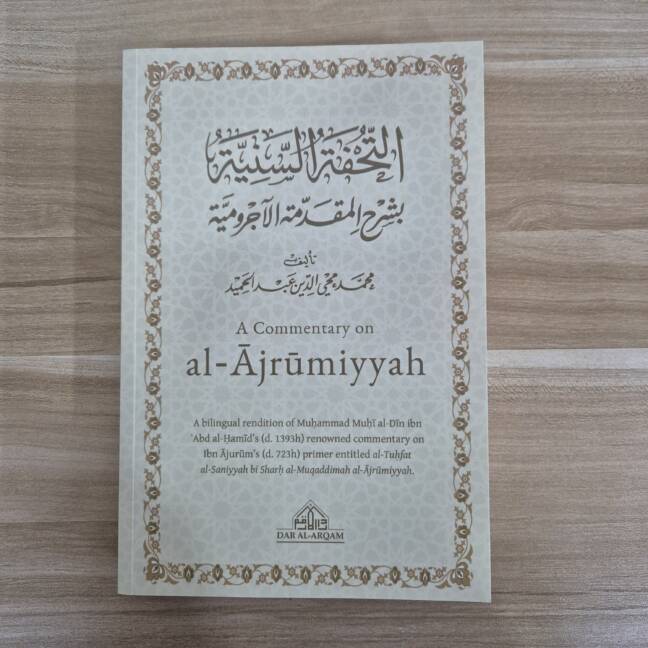 التُّحْفَةُ السَّنِيَّةُ
بِشَرْحِ المُقَدِّمَةِ الآجُرُّومِيَّةِ
تأليف
محمد محيي الدين عبد الحميد
A Commentary on
al-Ājrūmiyyah
A bilingual rendition of Muḥammad Muḥī al-Dīn ibn
ʿAbd al-Ḥamīd's (d. 1393h) renowned commentary on
Ibn Ājurūm's (d. 723h) primer entitled al-Tuhfat
al-Saniyyah bi Sharḥ al-Muqaddimah al-Ājrūmiyyah.
دار الأرقم
DAR AL-ARQAM